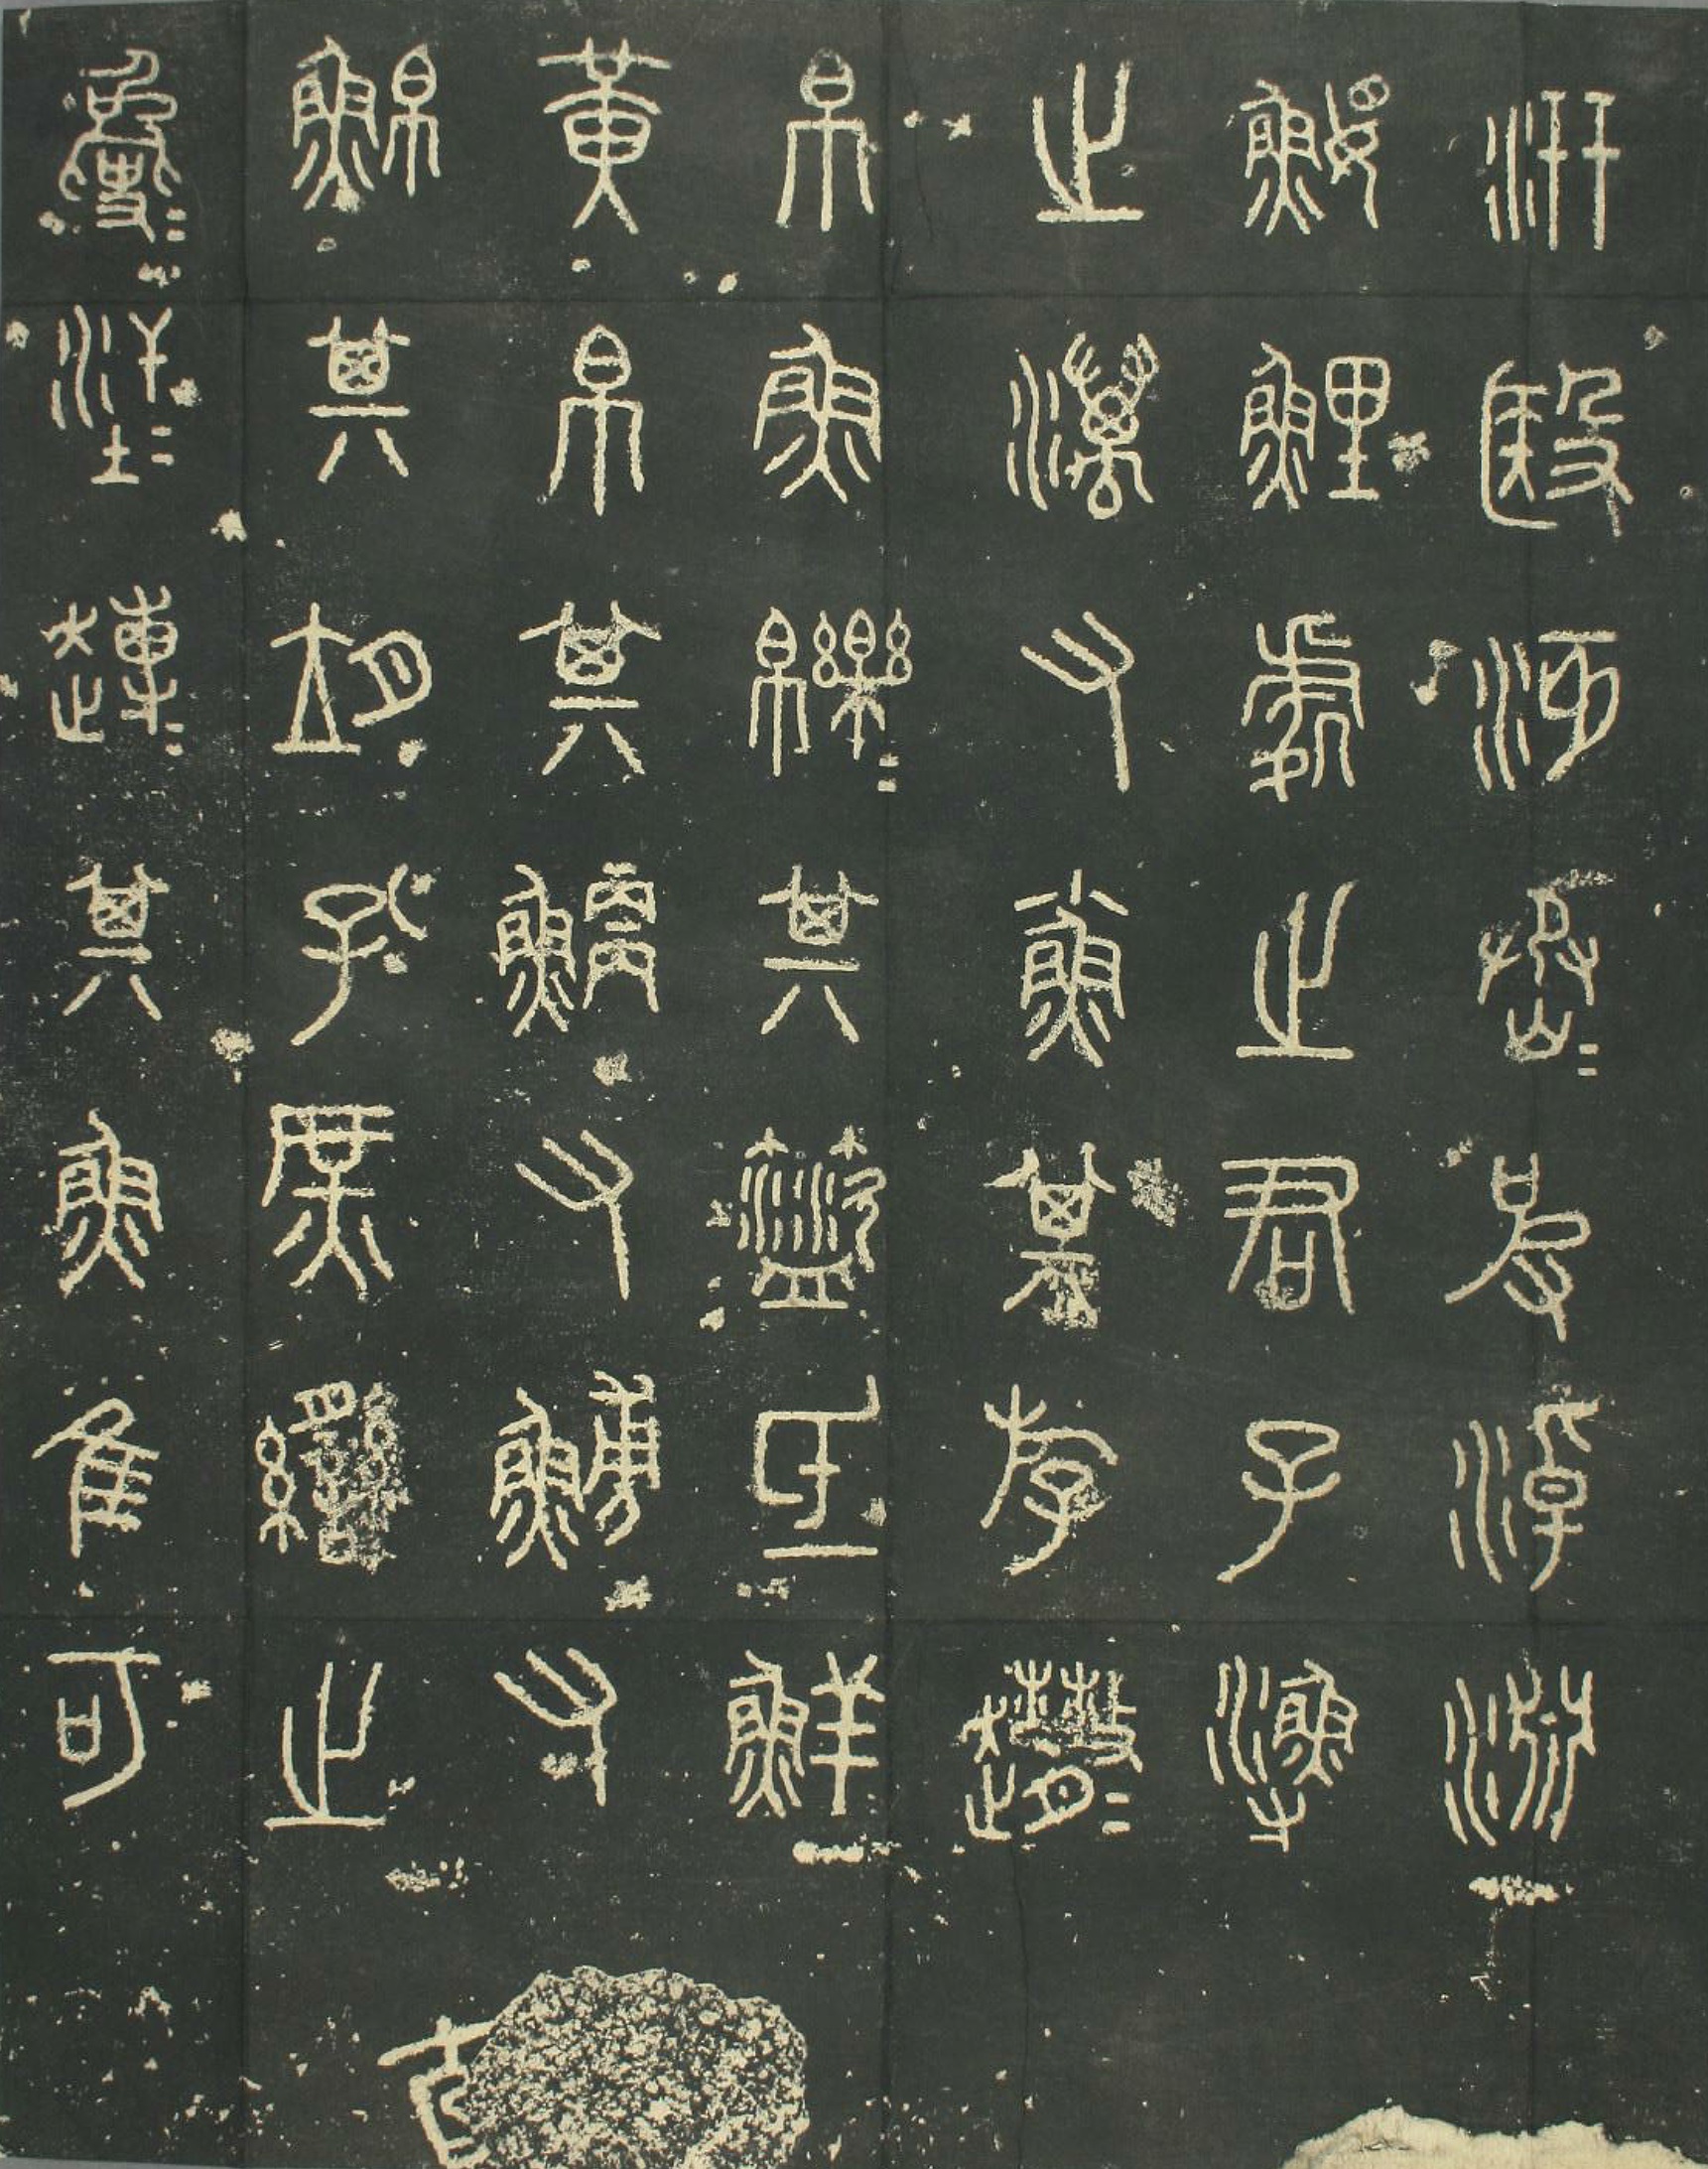 汧殹沔丞=皮淖淵
鰋鯉處之君子漁
之澫又小魚其斿趣=
帛魚皪=其盜氐鮮
黃帛其鯿又鯆又
鮊其朔孔庶臠之
其魚隹可